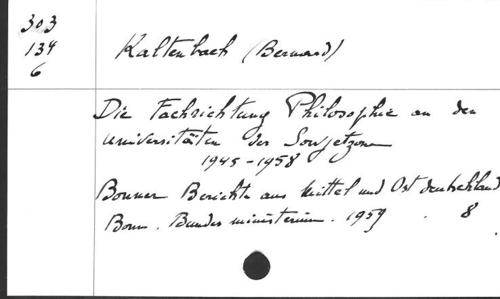 303
134
6
Kaltenbach (Bernard)
Die Fachrichtung Philosophie an den
Universitäten der Sowjetzone
1945-1958
Bonner Berichte aus Mittel und Ostdeutschland
Bonn. Bundesministerium. 1959. 8